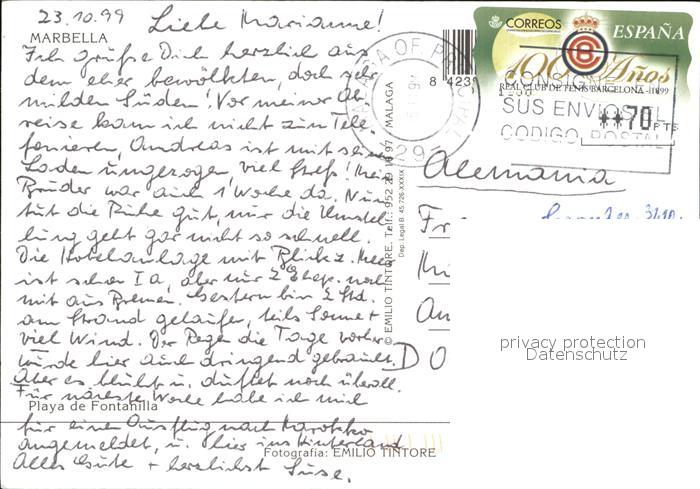 23.10.99 Liebe Marianne!
MARBELLA
Ich grüße Dich herzlich aus
dem eher bewölkten, doch sehr
milden Süden! Vor meiner Ab-
reise kam ich nicht zum Tele-
fonieren, Andreas ist mit sein.
Laden umgezogen, viel Streß! Mein
Bruder war auch 1 Woche da. Nun
tut die Ruhe gut, nur die Umstel-
lung geht gar nicht so schnell.
Die Hotelanlage mit Blick z. Meer
ist schon Ia, aber nur 2 Ehep. noch
mit aus Bremen. Gestern bin 2 Std.
am Strand gelaufen, teils Sonne +
viel Wind. Der Regen die Tage vorher
würde hier auch dringend gebraucht.
Aber es blüht u. duftet noch überall.
Für nächste Woche habe ich mich
Playa de Fontanilla
für einen Ausflug nach Marokko
angemeldet, u. hier ins Hinterland
Fotografía: EMILIO TINTORE
Alles Gute + herzlichst Suse.
© EMILIO TINTORE. Telf.: 952 29 18 97 MALAGA
Dep. Legal B. 45.726-XXXIX
8 4239
CORREOS
ESPAÑA
100 Años
REAL CLUB DE TENIS BARCELONA-1899
CONSIGNE
SUS ENVIOS EL
CODIGO POSTAL
**70 PTS
29
Alemania
Fr
An
D O
privacy protection
Datenschutz